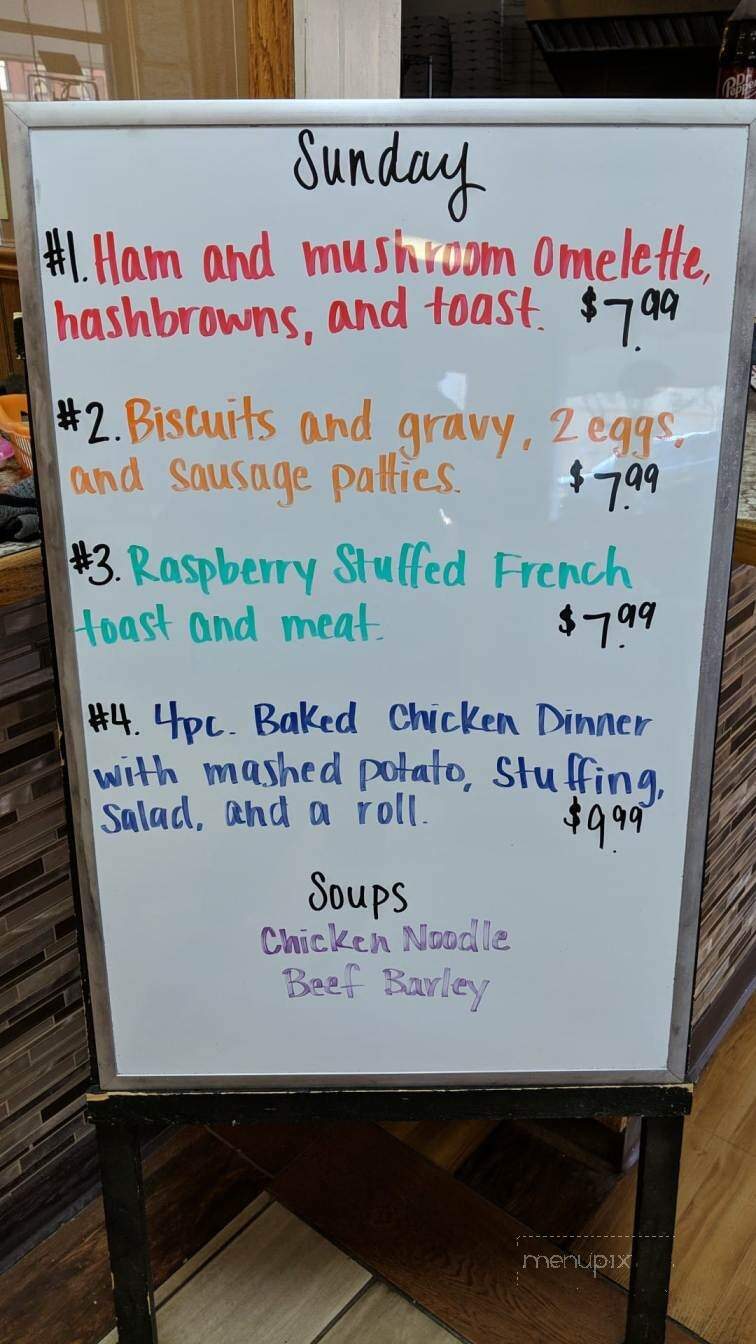 Dr Pepper
Sunday
#1. Ham and mushroom omelette,
hashbrowns, and toast. $7.99
#2. Biscuits and gravy, 2 eggs,
and sausage patties. $7.99
#3. Raspberry Stuffed French
toast and meat. $7.99
#4. 4pc. Baked Chicken Dinner
with mashed potato, Stuffing,
Salad, and a roll. $9.99
Soups
Chicken Noodle
Beef Barley
menupix